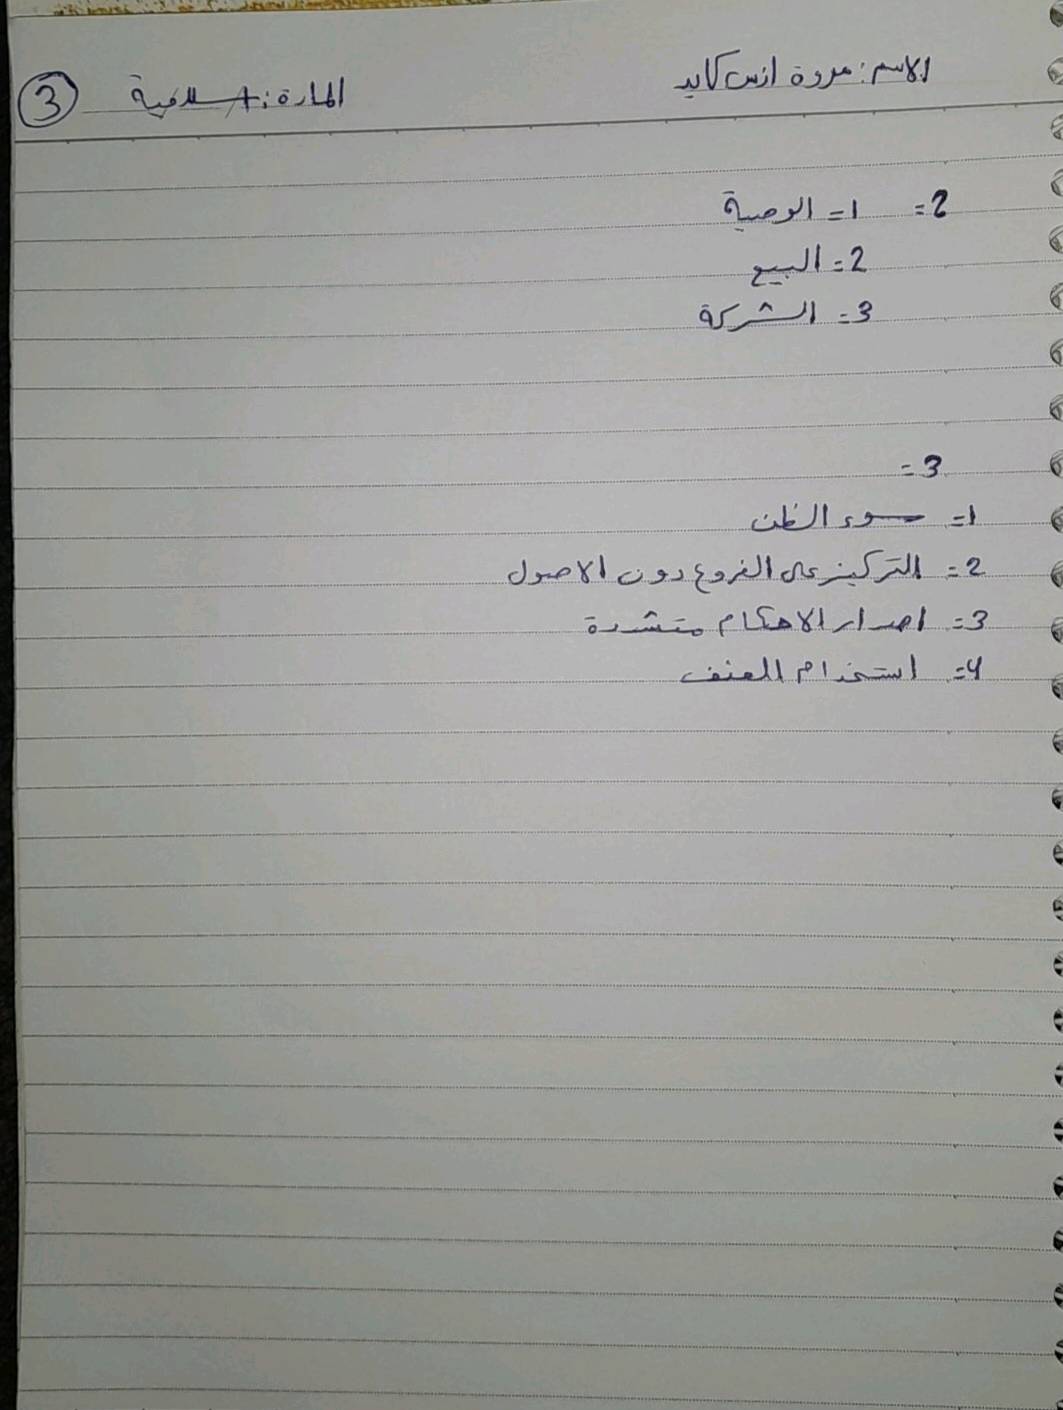 الاسم: مروة انس كايد
المادة: اسلامية 3
2= 1= الوصية
2= البيع
3= الشركة
3=
1= سوء الظن
2= التركيز على الفروع دون الاصول
3= اصدار الاحكام متشددة
4= استخدام العنف